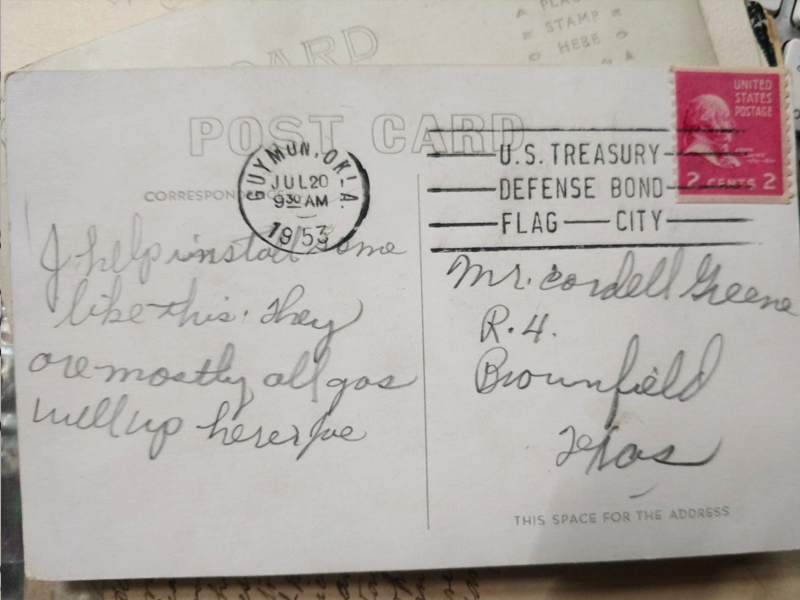 PLACE
STAMP
HERE
CARD
POST CARD
UNITED
STATES
POSTAGE
2 CENTS 2
GUYMON, OKLA.
JUL 20
9 30 AM
1953
U.S. TREASURY
DEFENSE BOND
FLAG CITY
CORRESPONDENCE
I help install some
like this. They
are mostly all gas
well up here
Mr. Cordell Greene
R. 4.
Brownfield
Texas
THIS SPACE FOR THE ADDRESS